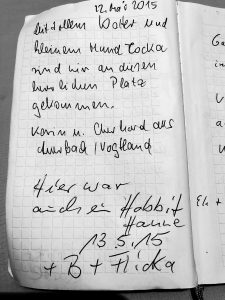 12. Mai 2015
mit tollem Wetter und
kleinem Hund Cocka
sind wir an diesen
herrlichen Platz
gekommen.
Karin u. Eberhard aus
Auerbach / Vogtland
Hier war
auch ein Hobbit
Hanne
13.5.15
+ B + Flicka